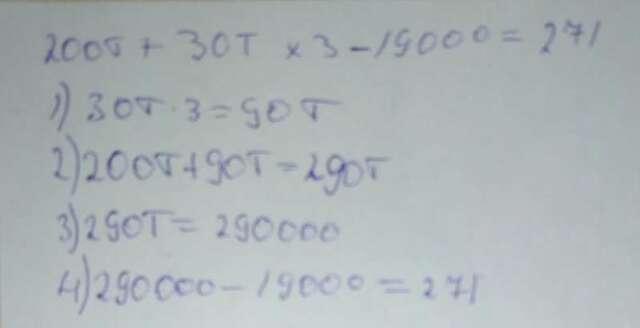 200т + 30т × 3 - 19000 = 271
1) 30т · 3 = 90т
2) 200т + 90т = 290т
3) 290т = 290000
4) 290000 - 19000 = 271